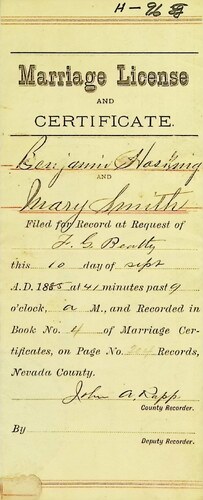 H-96
Marriage License
AND
CERTIFICATE.
Benjamin Hosking
AND
Mary Smith
Filed for Record at Request of
J. G. Beatty
this 10 day of Sept
A.D. 1885 at 41 minutes past 9
o'clock, a M., and Recorded in
Book No. 4 of Marriage Cer-
tificates, on Page No. Records,
Nevada County.
John A. Rapp
County Recorder.
By
Deputy Recorder.